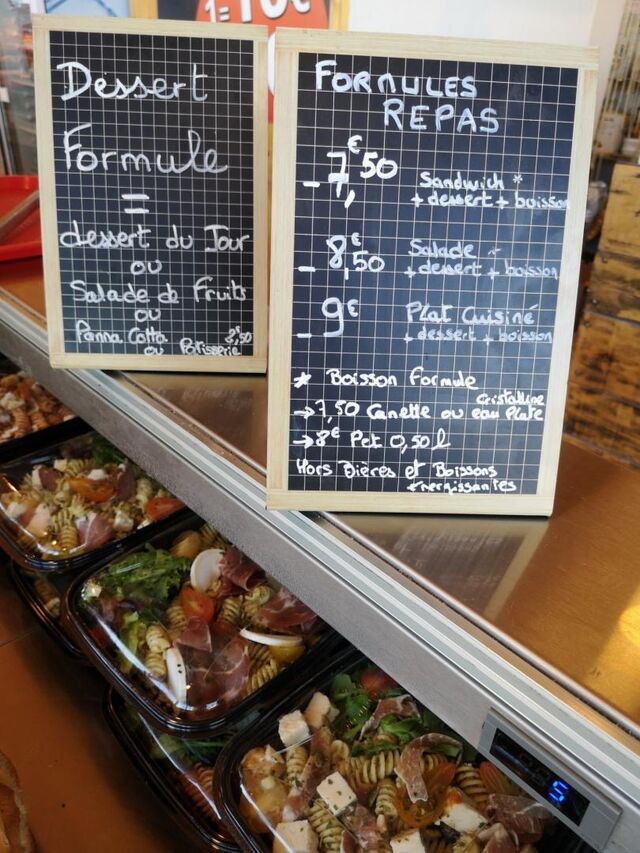 1=10€
Dessert
Formule
=
dessert du Jour
ou
Salade de Fruits
ou
Panna Cotta 2,50
ou Patisserie
FORMULES
REPAS
- 7,€50 Sandwich *
+ dessert + boisson
- 8,€50 Salade
+ dessert + boisson
- 9€ Plat Cuisiné
+ dessert + boisson
* Boisson Formule
→ 7,50 Canette ou eau Plate Cristalline
→ 8€ Pet 0,50l
Hors Bières et Boissons
energissantes
5